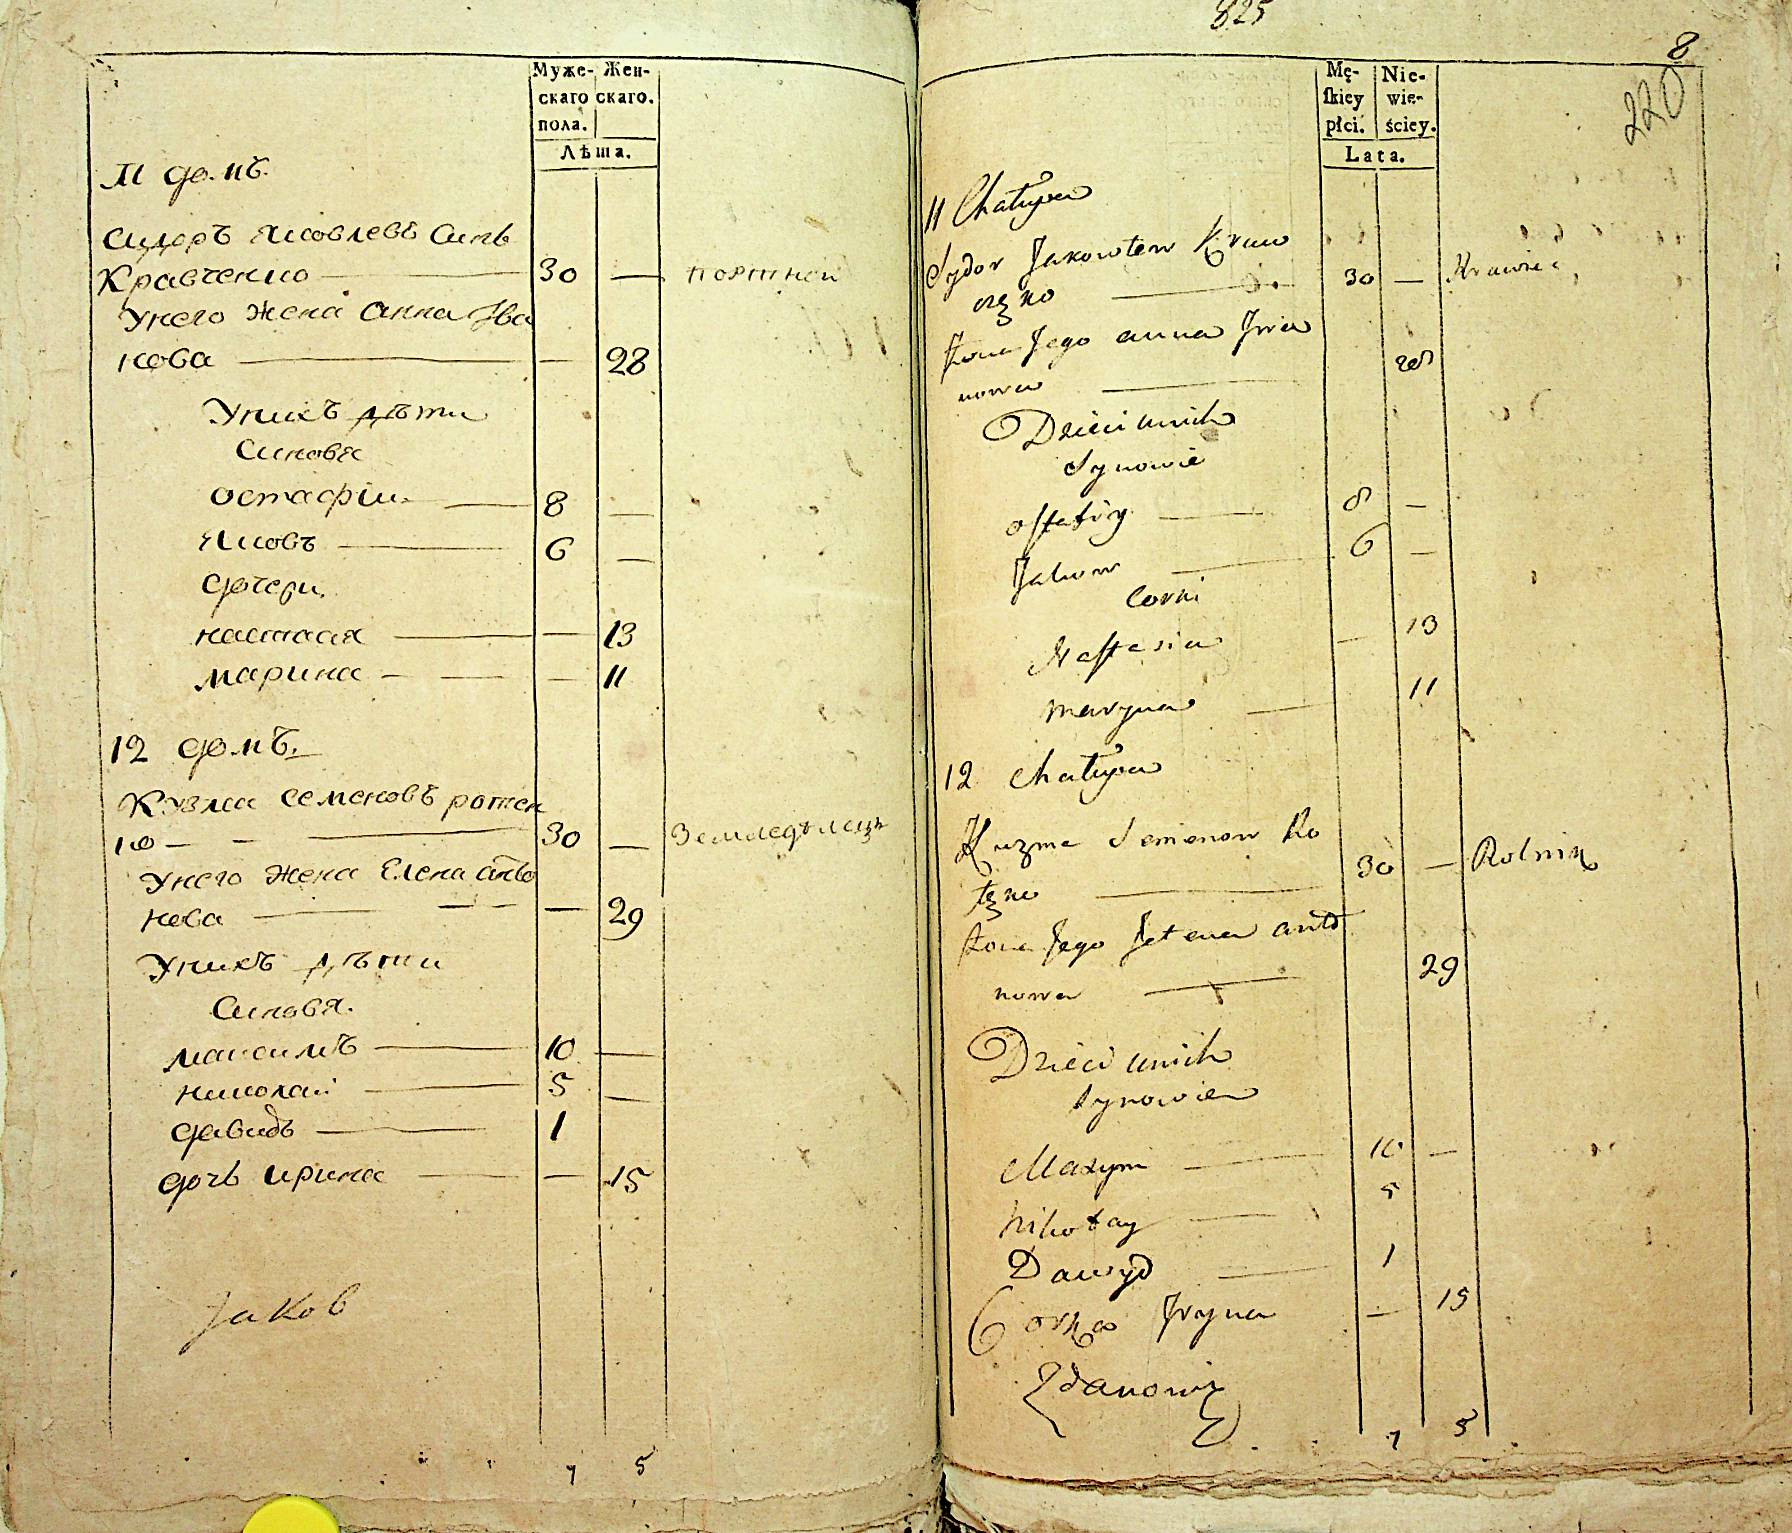 Муже- Жен-
скаго скаго.
пола.
Лѣта.
11 домъ.
Сидоръ Яковлевъ Синъ
Кравченко 30 — портной
Унего жена Анна Ива
нова — 28
Унихъ дѣти
Синовя
Остафiи 8 —
Яковъ 6 —
дочери
настася — 13
марина — 11
12 домъ.
Кузма Семеновъ ротен
ко 30 — Земледѣлецъ
Унего жена Елена анто
нова — 29
Унихъ дѣти
Синовя.
максимъ 10 —
николай 5 —
давидъ 1
дочь ирина — 15
Jakob
7 5
825
8
220
Mę- Nie-
skiey wie-
płci. ściey.
Lata.
11 Chałupa
Sydor Jakowlew Kraw
częko 30 — Krawiec
Żona Jego anna Iwa
nowa 28
Dzieci unich
Synowie
ostafiy 8 —
Jakow 6 —
Corki
Nastasia — 13
maryna 11
12 Chałupa
Kuzma Semenow Ro
tęko 30 — Rolnik
Żona Jego Jelena anto
nowa 29
Dzieci unich
synowie
Maxym 10 —
Nikołay 5
Dawyd 1
Corka Iryna — 15
7 5